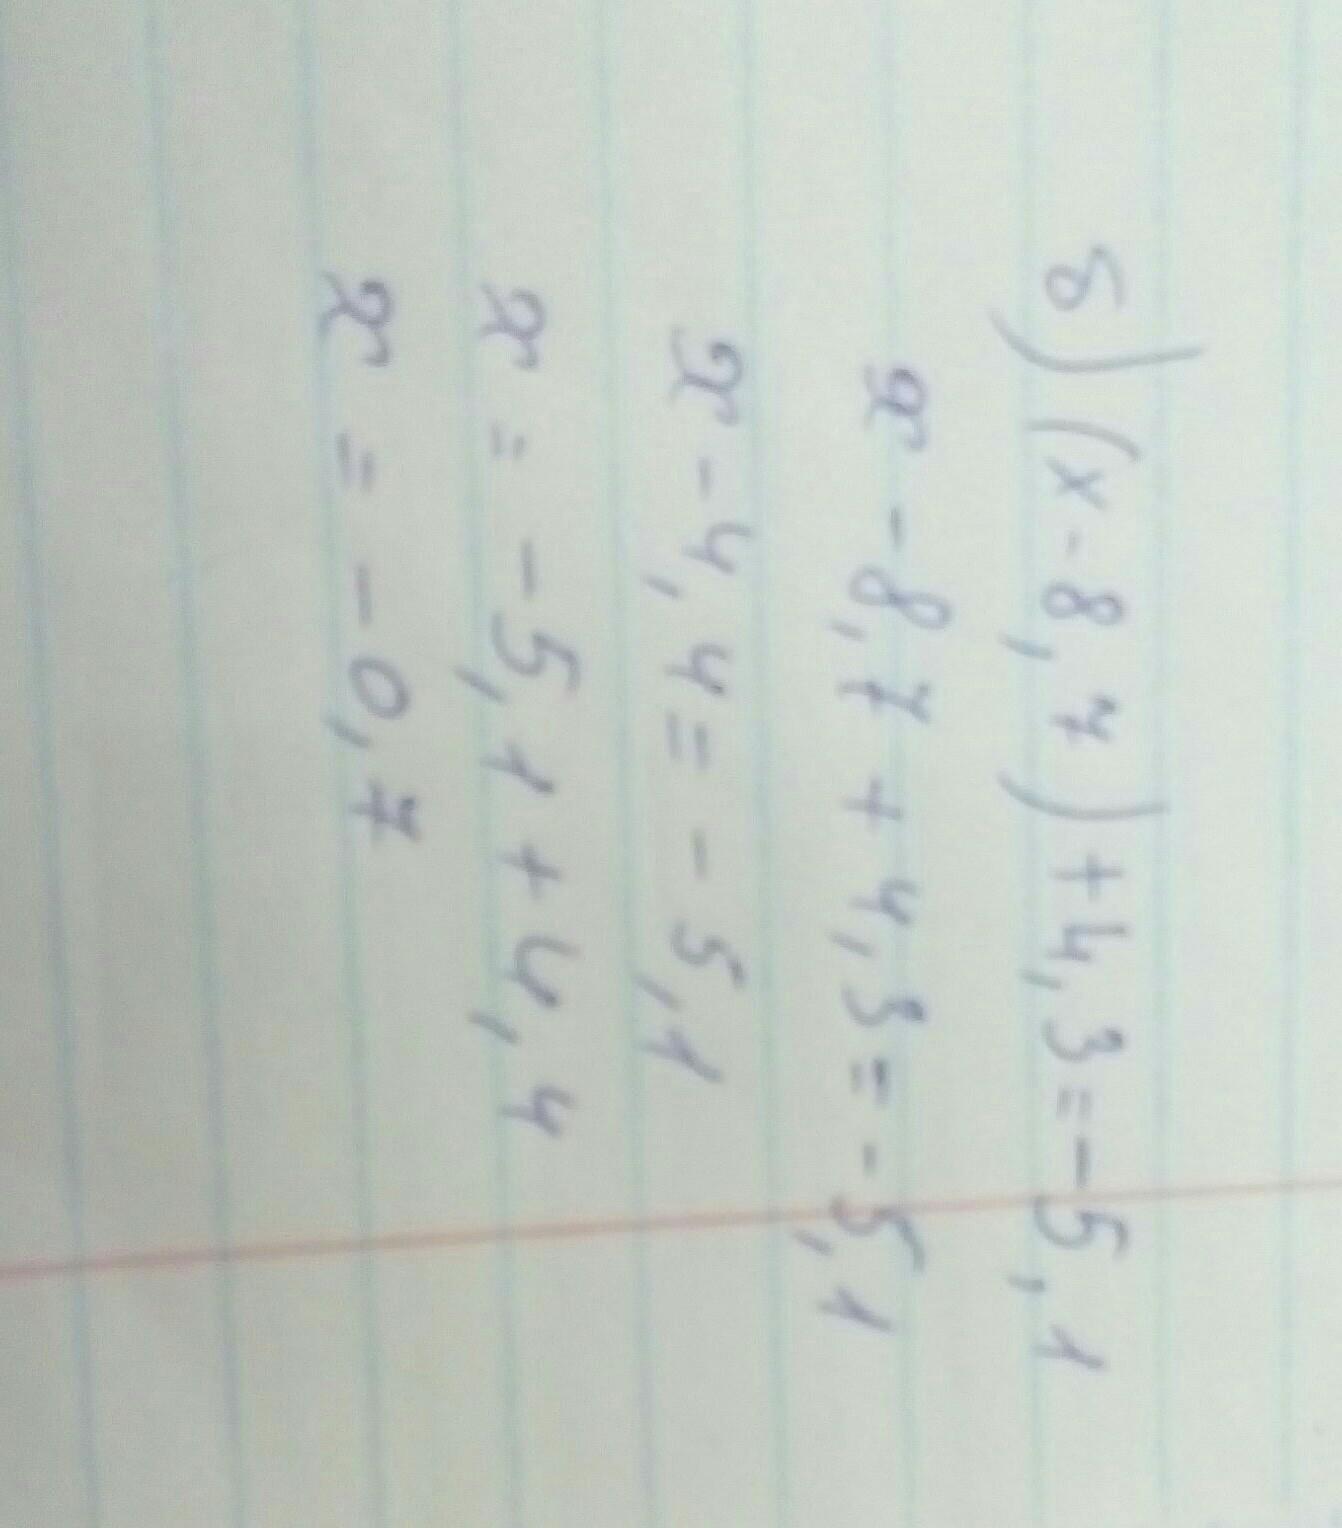 б) (x - 8,7) + 4,3 = - 5,1
x - 8,7 + 4,3 = - 5,1
x - 4,4 = - 5,1
x = - 5,1 + 4,4
x = - 0,7